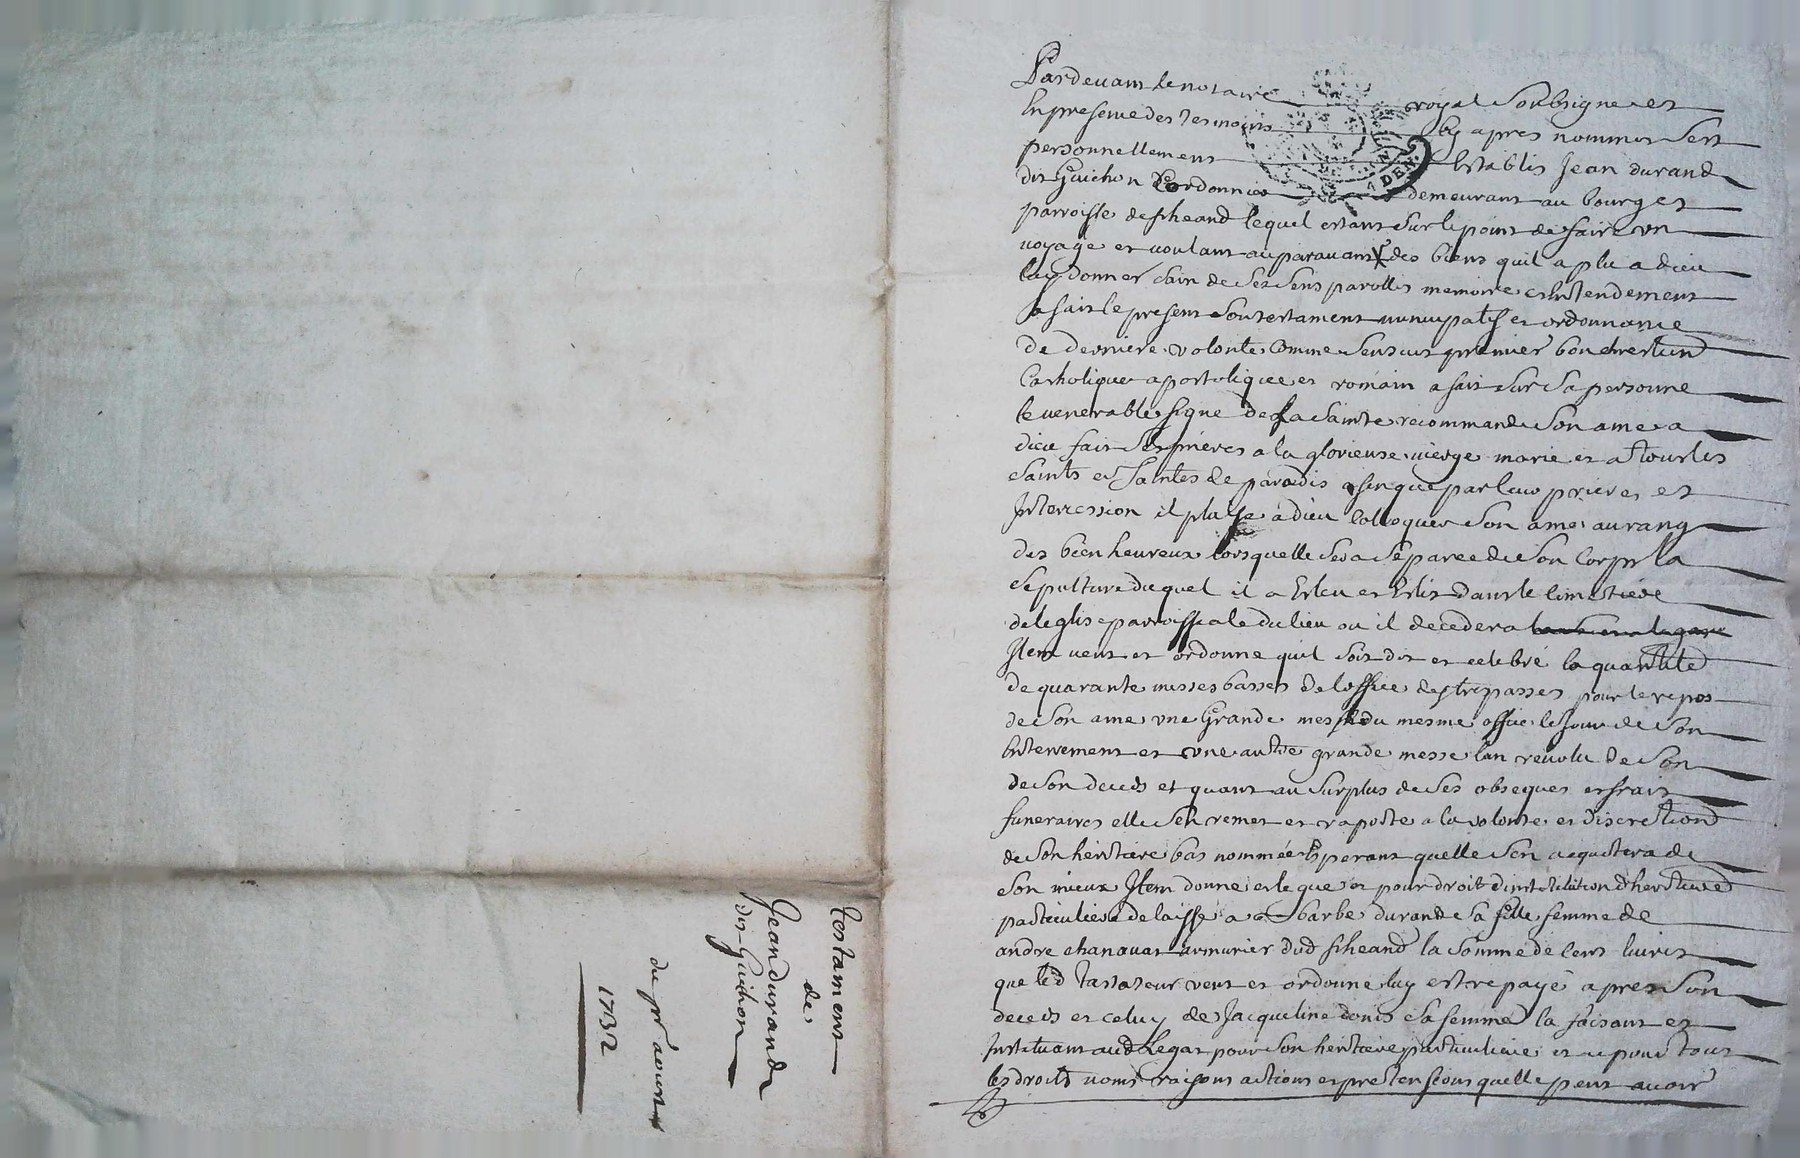 Testament
de
Jean durand
dit Guichon
du pr aoust
1732
Pardevant le notaire royal Soubsigne et
En presence des tesmoins Cy apres nommes Sest
personnellement Establis Jean durand
dit Guichon Cordonnier demeurant au bourg et
parroisse de lequel estant Sur le point de faire un
voyage et voulant auparavant des biens quil a plu a dieu
luy donner Sain de Ses Sens parolles memoire et Entendement
a fait le present Son testament nuncupatif et ordonnance
De derniere volonte Comme Sensuit premier bon chrestien
Catholique apostolique et romain a fait Sur Sa personne
le venerable signe de la Sainte recommande Son ame a
dieu fait Ses prieres a la glorieuse vierge marie et a tous les
Saints et Saintes de paradis afin que par leurs prieres et
Intercession il playse a dieu Colloquer Son ame au rang
des bien heureux lorsquelle Sera Separee de Son Corps la
Sepulture duquel il a Esleu et Eslit dans le Cimetiere
de leglise parroissiale du lieu ou il decedera
Item veut et ordonne quil Soit dit et celebré la quantité
de quarante messes basses de loffice des trepasses pour le repos
de Son ame une Grande messe du mesme office le Jour de Son
Enterrement et une autre grande messe lan revolu de Son
de Son deceds et quant au Surplus de Ses obseques et frais
funeraires elle Sen remet et raporte a la volonte et discretion
de Son heritiere bas nommée Esperant quelle Sen acquitera de
Son mieux Item donne et legue et pour droit dinstitution dheritiere
particuliere delaisse a barbe durand Sa fille femme de
andre chanavat armurier dud la Somme de Cent livres
que led testateur veut et ordonne luy estre payé apres Son
deceds et celuy de Jacqueline donis Sa femme la faisant et
Instituant aud Legat pour Son heritiere particuliere et ce pour tous
les droits noms raisons actions et pretensions quelle peut avoir